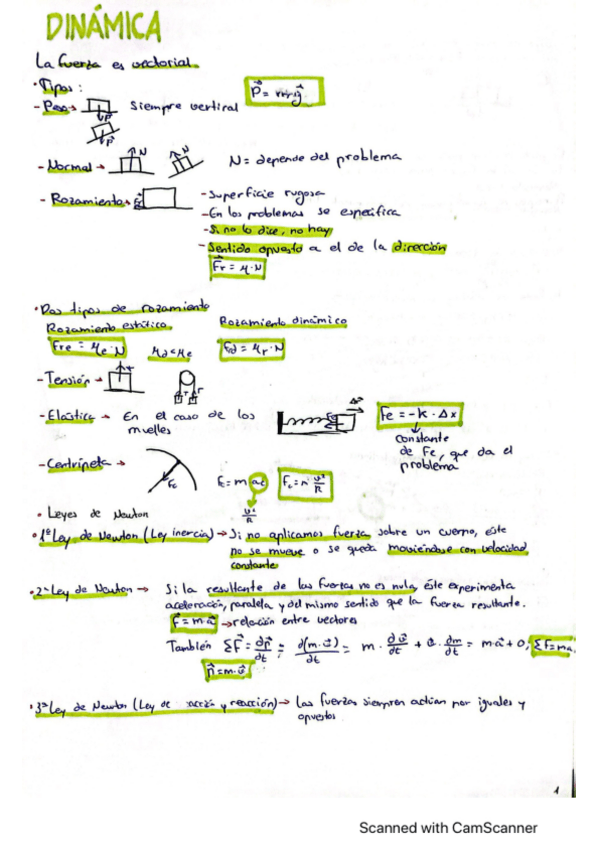 DINÁMICA
La fuerza es vectorial.
· Tipos:
- Peso → P Siempre vertical P⃗ = m·g⃗
P
- Normal → N N = depende del problema
- Rozamiento → - Superficie rugosa
- En los problemas se especifica
- Si no lo dice, no hay
- Sentido opuesto a el de la dirección
F⃗r = μ·N
· Dos tipos de rozamiento
Rozamiento estático Rozamiento dinámico
Fre = μe·N μd<μe Fd = μr·N
- Tensión → T T T
- Elástica → En el caso de los muelles Fe = -K · Δx
constante de Fe, que da el problema
- Centrípeta → Fc Fc = m ac Fc = m v²/R
v²/R
· Leyes de Newton
· 1ª Ley de Newton (Ley inercia) → Si no aplicamos fuerza sobre un cuerpo, éste
no se mueve o se queda moviéndose con velocidad
constante
· 2ª Ley de Newton → Si la resultante de las fuerzas no es nula, éste experimenta
aceleración, paralela y del mismo sentido que la fuerza resultante.
F⃗ = m·a⃗ → relación entre vectores
También ΣF⃗ = ∂p⃗/∂t = ∂(m·v⃗)/∂t = m · ∂v⃗/∂t + v⃗ · ∂m/∂t = m·a⃗ + 0, ΣF=ma
p⃗ = m·v⃗
· 3ª Ley de Newton (Ley de acción y reacción) → Las fuerzas siempren actúan por iguales y
opuestos
1
Scanned with CamScanner